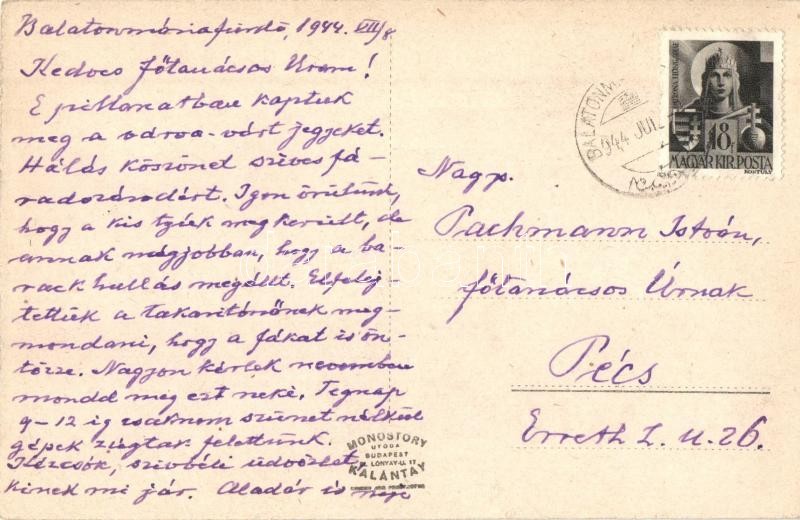 Balatonmáriafürdő, 1944. VII/8.
Kedves főtanácsos Uram!
E pillanatban kaptuk
meg a várva-várt jegyeket.
Hálás köszönet szíves fá-
radozásodért. Igen örülünk,
hogy a kis tyúk megkerült, de
annak mégjobban, hogy a ba-
rack hullás megállt. Elfelej
tettük a takarítónőnek meg-
mondani, hogy a fákat is ön-
tözze. Nagyon kérlek
mondd meg ezt neki. Tegnap
9-12 ig csaknem szünet nélkül
gépek zúgtak felettünk.
Kézcsók, szívbéli üdvözlet,
kinek mi jár. Aladár és neje
Nagys.
Pachmann István,
főtanácsos Úrnak
Pécs
Erreth L. u. 26.
BALATONM
944 JUL
18f
MAGYAR KIR. POSTA
KONTULY
MONOSTORY
UTÓDA
BUDAPEST
LÓNYAY-U. 17
KALÁNTAY